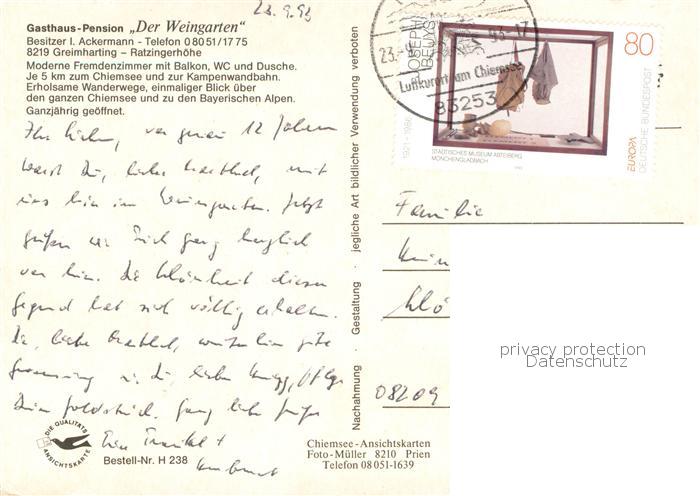 23.9.93
Gasthaus-Pension „Der Weingarten“
Besitzer I. Ackermann - Telefon 0 80 51 / 17 75
8219 Greimharting - Ratzingerhöhe
Moderne Fremdenzimmer mit Balkon, WC und Dusche.
Je 5 km zum Chiemsee und zur Kampenwandbahn.
Erholsame Wanderwege, einmaliger Blick über
den ganzen Chiemsee und zu den Bayerischen Alpen.
Ganzjährig geöffnet.
Ihr Lieben, vor genau 12 Jahren
warst Du, liebe mit
uns hier im Weingarten. Jetzt
grüßen wir Dich ganz herzlich
von hier. Die Schönheit dieser
Gegend hat sich völlig erhalten.
Dir, liebe weiterhin gute
Genesung u. Dir, lieber pflege
Dein ganz liebe Grüße
Eure Traudel +
DIE QUALITÄTS
ANSICHTSKARTE
Bestell-Nr. H 238
Nachahmung · Gestaltung · jegliche Art bildlicher Verwendung verboten
Chiemsee-Ansichtskarten
Foto-Müller 8210 Prien
Telefon 08 051-1639
23.-9.93-17
Luftkurort am Chiemsee
83253
JOSEPH
BEUYS
1921-1986
80
STÄDTISCHES MUSEUM ABTEIBERG
MÖNCHENGLADBACH
EUROPA
DEUTSCHE BUNDESPOST
Familie
08209
privacy protection
Datenschutz